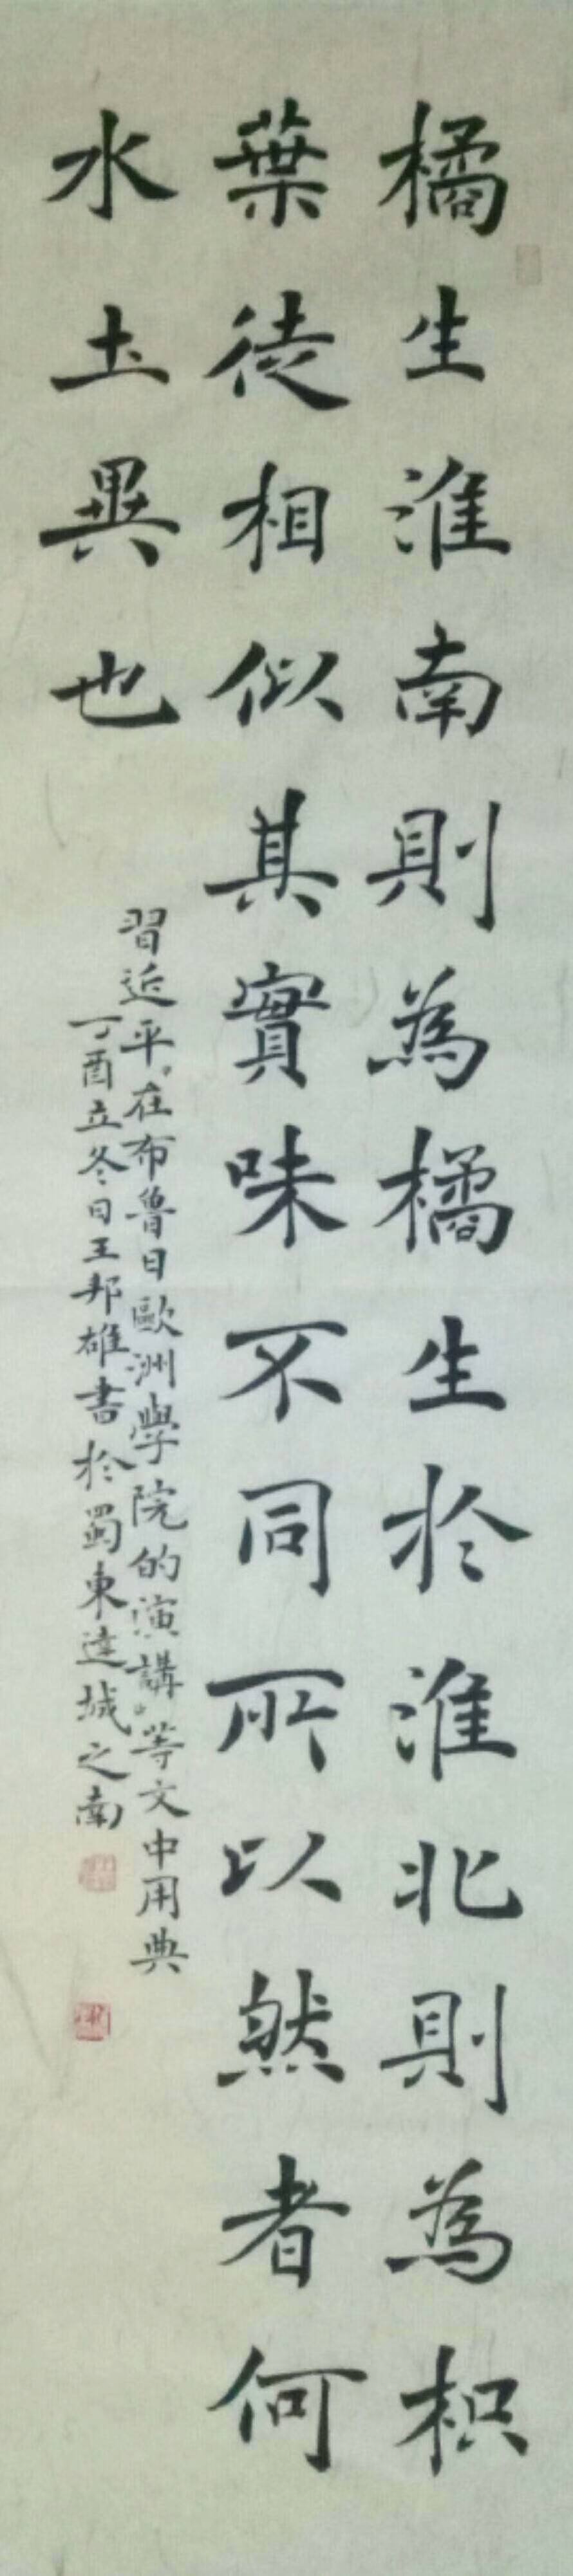 橘生淮南則為橘生於淮北則為枳
葉徒相似其實味不同所以然者何
水土異也
習近平在布魯日歐洲學院的演講等文中用典
丁酉立冬日王邦雄書於蜀東達城之南